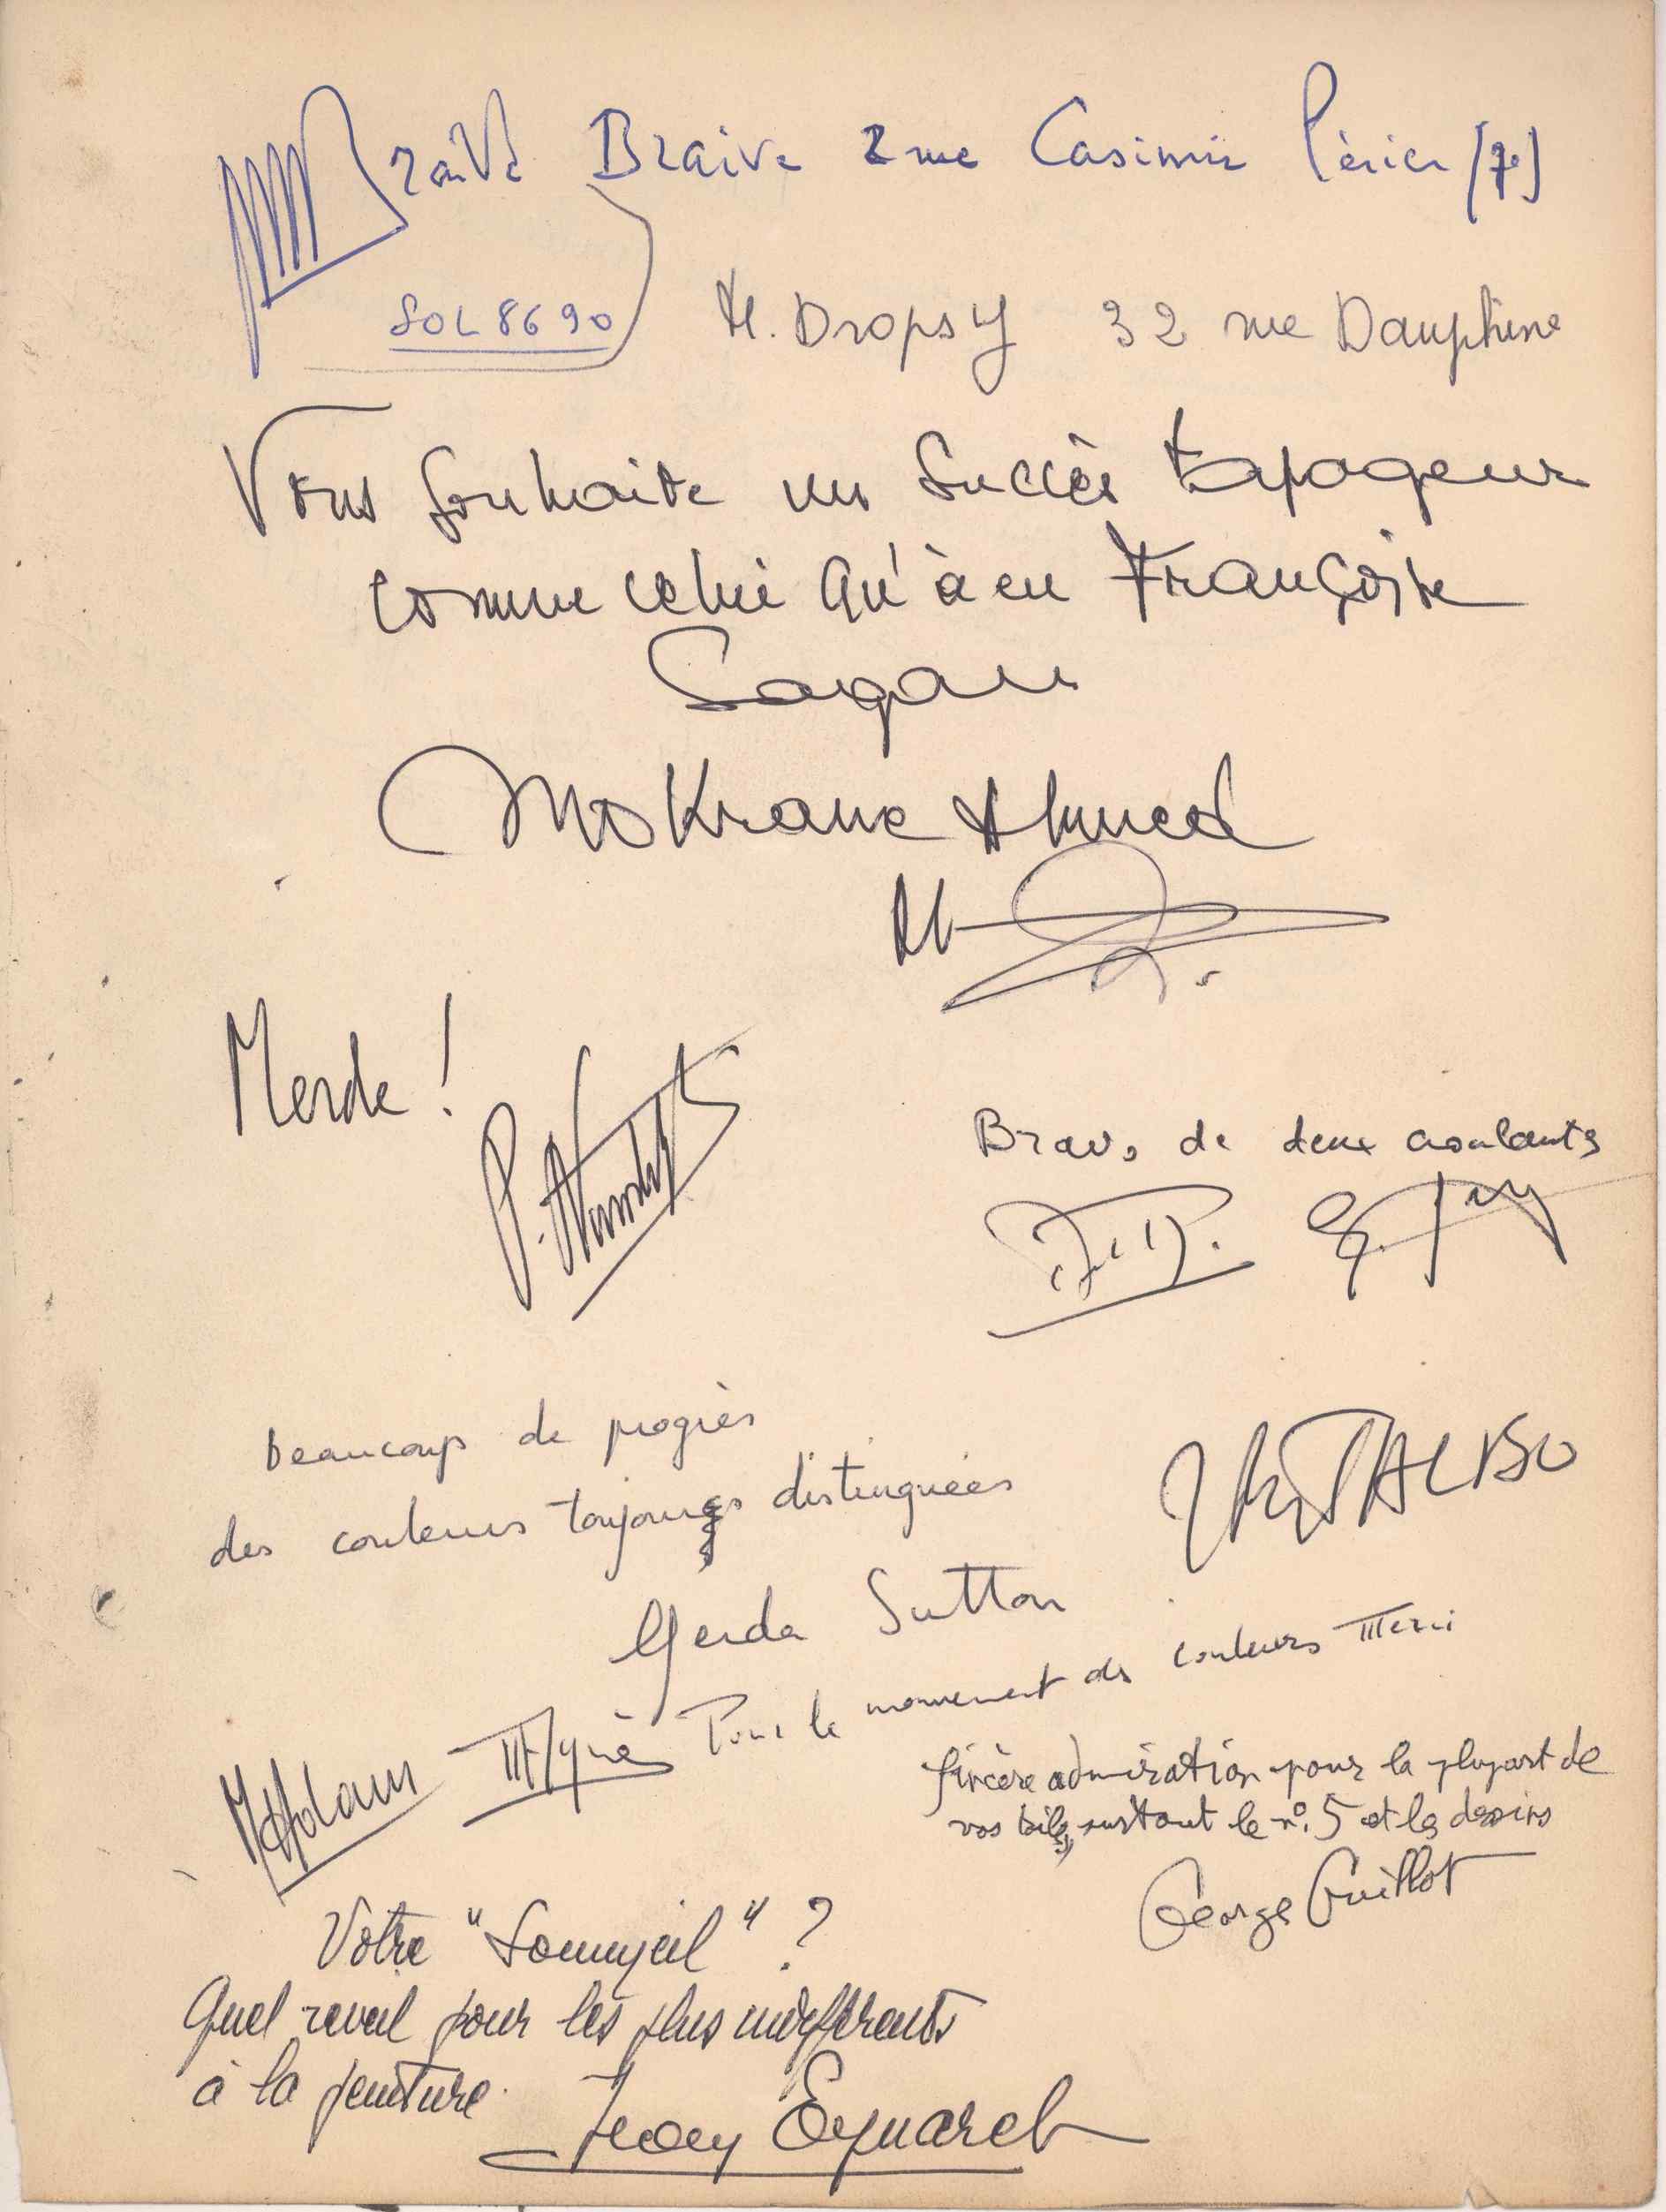 Braive Braive 2 rue Casimir Périer (7e)
SOL 8690
H. Dropsy 32 rue Dauphine
Vous souhaite un succès tapageur
comme celui qu'à eu Françoise
Sagan
Mokrane Ahmed
Merde !
Bravo de deux croulants
beaucoup de progrès
des couleurs toujours distinguées
Gerda Sutton
Pour le mouvement des couleurs Merci
Sincère admiration pour la plupart de
vos toiles, surtout le n°. 5 et les dessins
George Guillot
Votre "Sommeil" ?
Quel reveil pour les plus indifférents
à la peinture.
Jeany Eyquarch